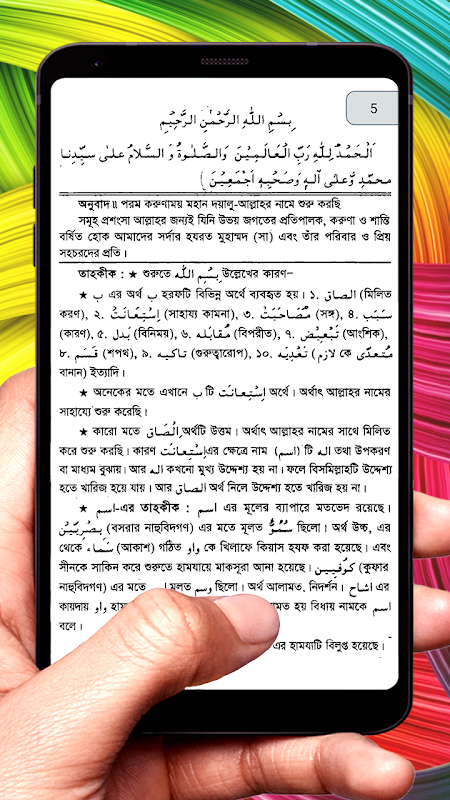 5
بِسْمِ اللّٰهِ الرَّحْمٰنِ الرَّحِيْمِ
اَلْحَمْدُ لِلّٰهِ رَبِّ الْعَالَمِيْنَ وَالصَّلٰوةُ وَ السَّلَامُ عَلٰى سَيِّدِنَا
مُحَمَّدٍ وَّعَلٰى اٰلِهٖ وَصَحْبِهٖ اَجْمَعِيْنَ )
অনুবাদ ॥ পরম করুণাময় মহান দয়ালু-আল্লাহর নামে শুরু করছি
সমূহ প্রশংসা আল্লাহর জন্যই যিনি উভয় জগতের প্রতিপালক, করুণা ও শান্তি
বর্ষিত হোক আমাদের সর্দার হযরত মুহাম্মদ (সা) এবং তাঁর পরিবার ও প্রিয়
সহচরদের প্রতি ।
তাহকীক : ★ শুরুতে بِسْمِ اللّٰه উল্লেখের কারণ–
★ ب এর অর্থ ب হরফটি বিভিন্ন অর্থে ব্যবহৃত হয় । ১. الصاق (মিলিত
করণ), ২. اِسْتِعَانَتْ (সাহায্য কামনা), ৩. مُصَاحَبَتْ (সঙ্গ), ৪. سَبَبْ
(কারণ), ৫. بَدل (বিনিময়), ৬. مُقَابله (বিপরীত), ৭. تَبْعِيْض (আংশিক),
৮. قَسَم (শপথ), ৯. تاكيه (গুরুত্বারোপ), ১০. تَعْدِيَه (لازم কে مُتعدّى
বানান) ইত্যাদি ।
★ অনেকের মতে এখানে ب টি اِسْتِعانَت অর্থে । অর্থাৎ আল্লাহর নামের
সাহায্যে শুরু করেছি ।
★ কারো মতে اِلْصَاق অর্থটি উত্তম । অর্থাৎ আল্লাহর নামের সাথে মিলিত
করে শুরু করছি । কারণ اِسْتِعَانَت এর ক্ষেত্রে নাম (اسم) টি اله তথা উপকরণ
বা মাধ্যম বুঝায় । আর اله কখনো মুখ্য উদ্দেশ্য হয় না । ফলে বিসমিল্লাহটি উদ্দেশ্য
হতে খারিজ হয়ে যায় । আর الصاق অর্থ নিলে উদ্দেশ্য হতে খারিজ হয় না ।
★ اسم-এর তাহকীক : اسم এর মূলের ব্যাপারে মতভেদ রয়েছে ।
بِصْرِيِّيْن (বসরার নাহুবিদগণ) এর মতে মূলত سُمُوٌّ ছিলো । অর্থ উচ্চ, এর
থেকে سَمَاء (আকাশ) গঠিত واو কে খিলাফে কিয়াস হযফ করা হয়েছে । এবং
সীনকে সাকিন করে শুরুতে হামযায়ে মাকসূরা আনা হয়েছে । كُوْفِيِيْن (কুফার
নাহুবিদগণ) এর মতে اسم মূলত وسم ছিলো । অর্থ আলামত, নিদর্শন । اشاح এর
কায়দায় واو হাম মত হয় বিধায় নামকে اسم
বলে ।
এর হামযাটি বিলুপ্ত হয়েছে ।